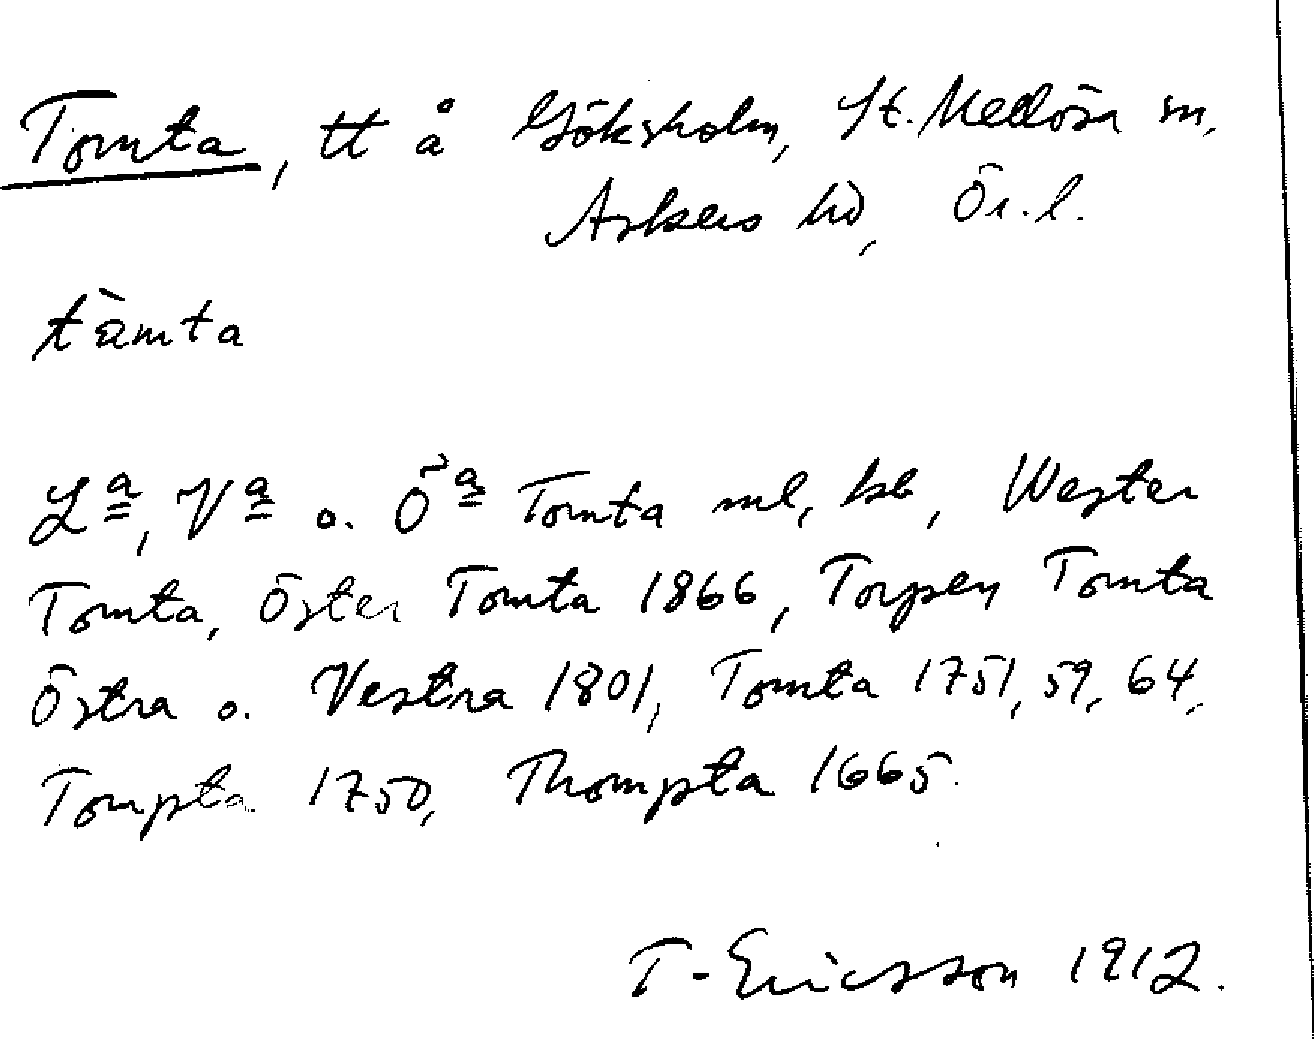 Tomta, tt å Göksholm, St. Mellösa sn,
Askers hd, Ör. l.
tàmta
La, Va o. Öa Tomta ml, kb, Wester
Tomta, Öster Tomta 1866, Torpen Tomta
Östra o. Vestra 1801, Tomta 1751, 59, 64,
Tompta 1750, Thompta 1665.
T-Ericsson 1912.